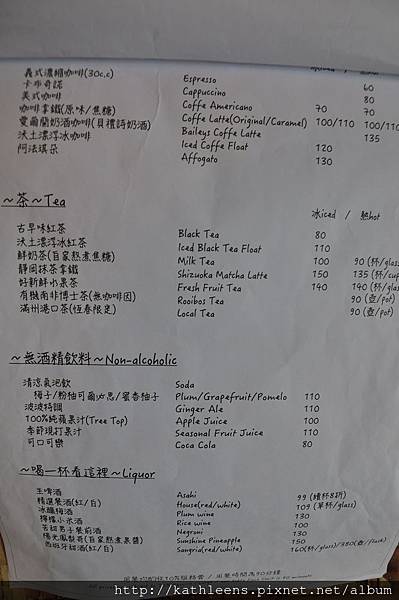 義式濃縮咖啡(30c.c) Espresso 60
卡布奇諾 Cappuccino 80
美式咖啡 Coffe Americano 70 70
咖啡拿鐵(原味/焦糖) Coffe Latte(Original/Caramel) 100/110 100/110
愛爾蘭奶酒咖啡(貝禮詩奶酒) Baileys Coffe Latte 135
沃土濃浮冰咖啡 Iced Coffe Float 120
阿法琪朵 Affogato 130
~茶~Tea
冰iced / 熱hot
古早味紅茶 Black Tea 80
沃土濃浮冰紅茶 Iced Black Tea Float 110
鮮奶茶(自家熬煮焦糖) Milk Tea 100 90 (杯/glass
靜岡抹茶拿鐵 Shizuoka Matcha Latte 150 135 (杯/cup
好新鮮水果茶 Fresh Fruit Tea 140 140 (杯/glass
有機南非博士茶(無咖啡因) Rooibos Tea 90 (壺/pot)
滿州港口茶(恆春限定) Local Tea 90 (壺/pot)
~無酒精飲料~Non-alcoholic
清涼氣泡飲 Soda
梅子/粉柚可爾必思/蜜香柚子 Plum/Grapefruit/Pomelo 110
波波特調 Ginger Ale 110
100%純蘋果汁(Tree Top) Apple Juice 100
季節現打果汁 Seasonal Fruit Juice 110
可口可樂 Coca Cola 80
~喝一杯看這裡~Liquor
生啤酒 Asahi 99 (續杯8折)
精選餐酒(紅/白) House(red/white) 109 (單杯/glass)
冰釀梅酒 Plum wine 130
檸檬小米酒 Rice wine 100
苦甜男子餐前酒 Negroni 130
陽光鳳梨哥(自家熬煮果醬) Sunshine Pineapple 150
西班牙甜酒(紅/白) Sangria(red/white) 160(杯/glass)/380(壺/flask)
http://kathleens.pixnet.net/album